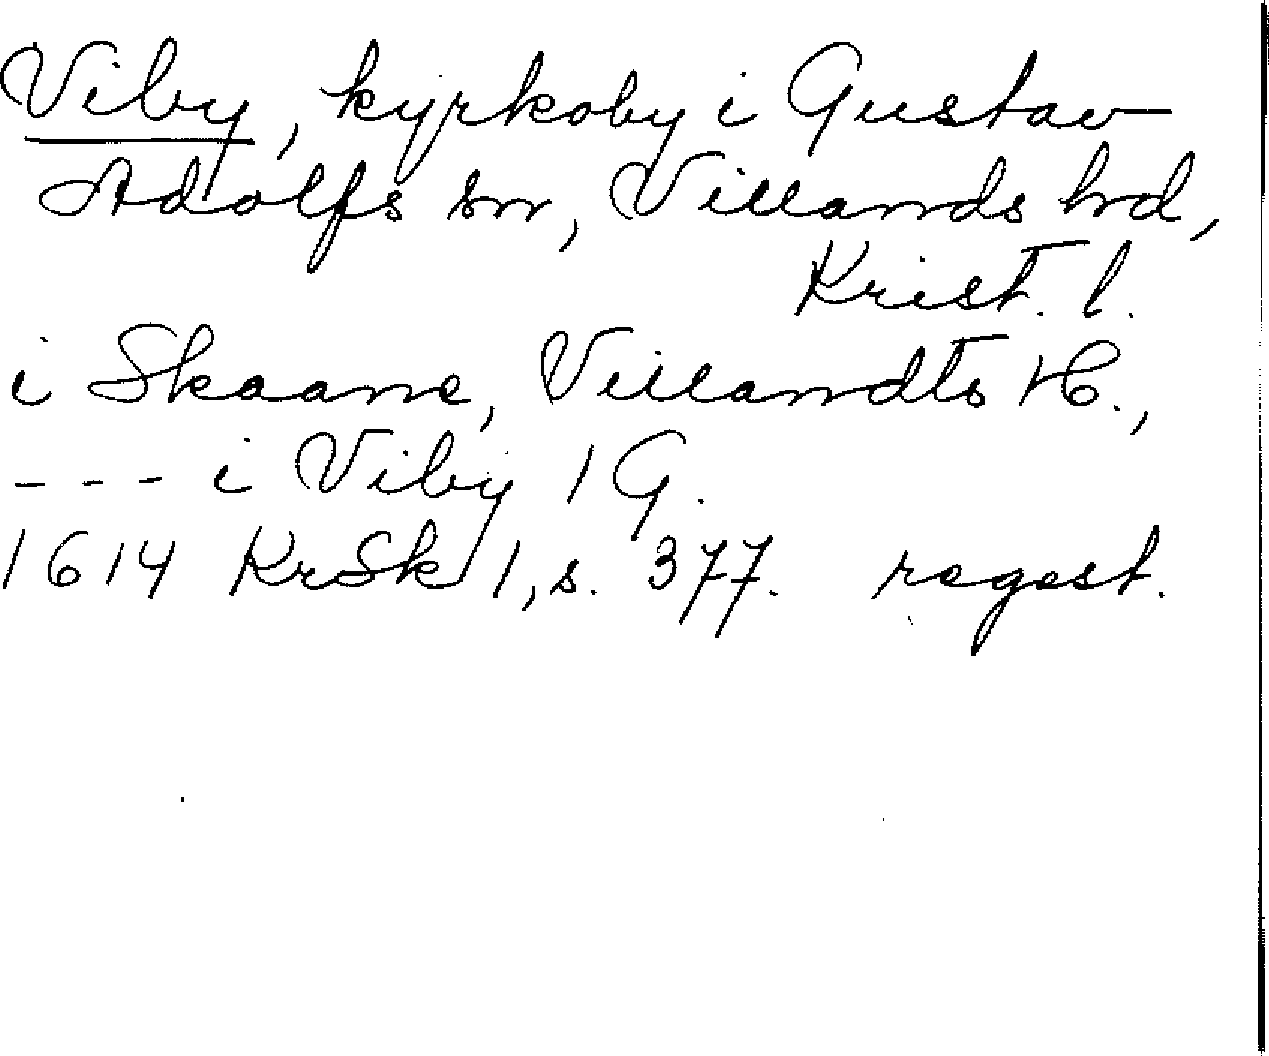 Viby, kyrkoby i Gustav
Adolfs sn, Villands hd,
Krist. l.
i Skaane, Villandts H.,
--- i Viby 1 G.
1614 KrSk 1, s. 377. regest.